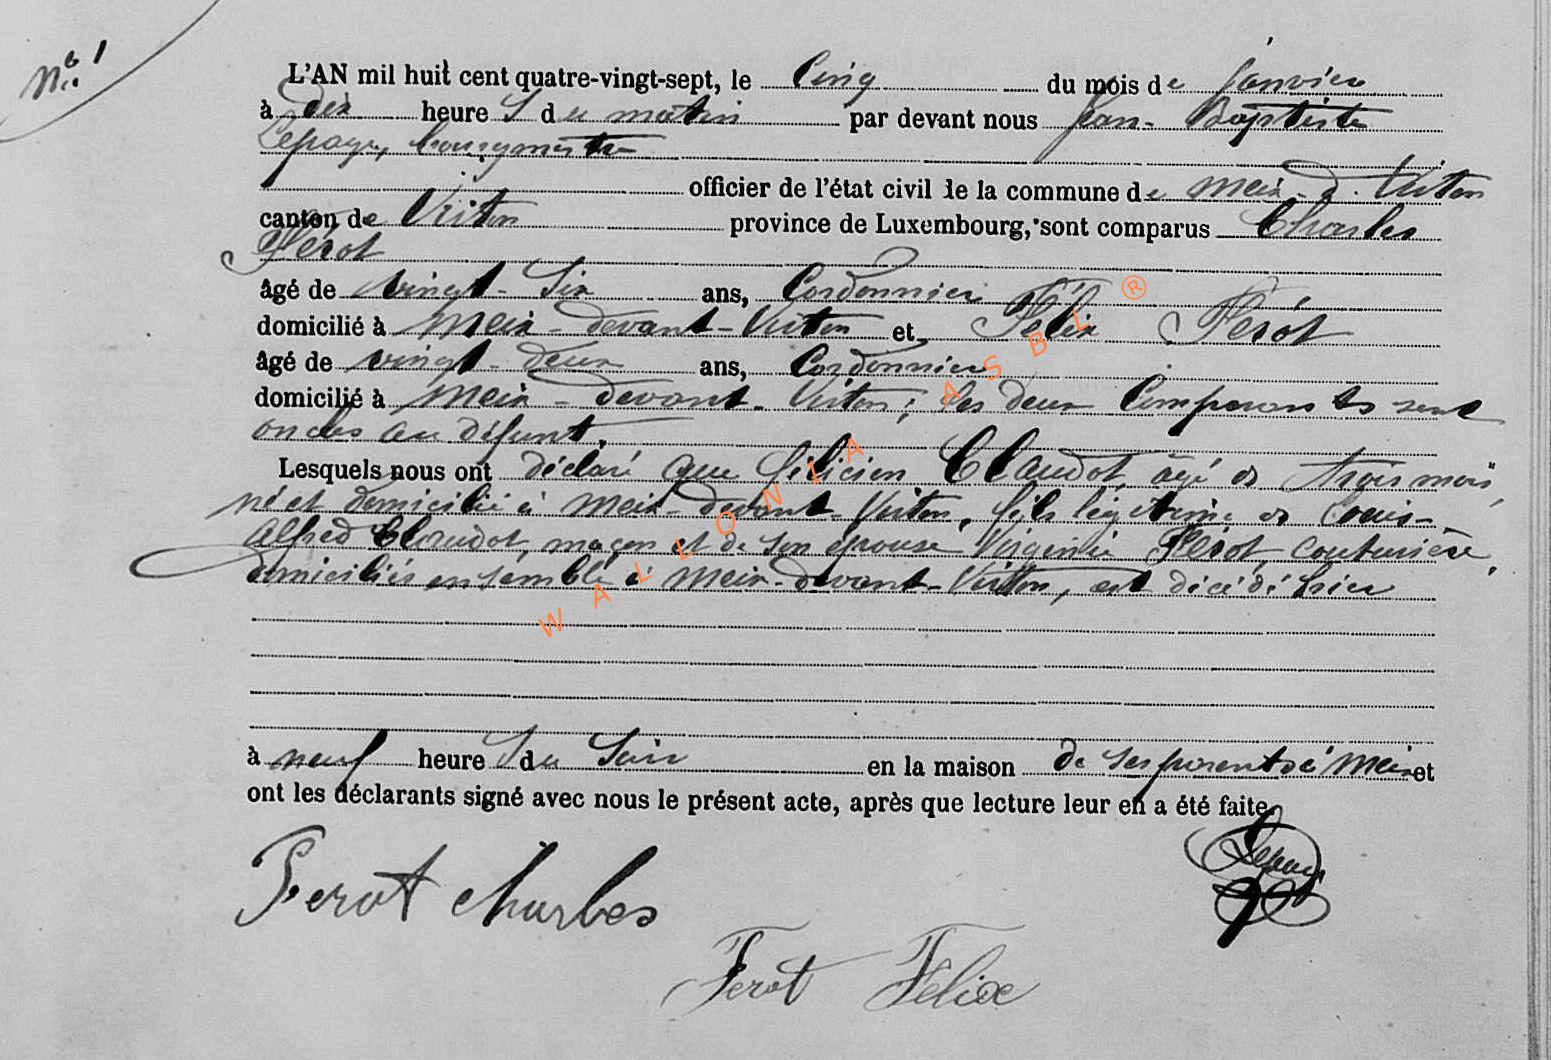 N° 1
L'AN mil huit cent quatre-vingt-sept, le Cinq du mois de Janvier
à dix heures du matin par devant nous Jean-Baptiste
Lepage, bourgmestre
officier de l'état civil de la commune de Meix-d.-Virton
canton de Virton province de Luxembourg, sont comparus Charles
Férot
âgé de vingt-six ans, Cordonnier
domicilié à Meix-devant-Virton et Félix Férot
âgé de vingt-deux ans, Cordonnier
domicilié à Meix-devant-Virton; les deux Comparants sont
oncles au défunt,
Lesquels nous ont déclaré que Félicien Claudot, âgé de trois mois,
né et domicilié à Meix-devant-Virton, fils légitime de Louis-
Alfred Claudot, maçon et de son épouse Virginie Férot, couturière,
domiciliés ensemble à Meix-devant-Virton, est décédé hier
à neuf heures du Soir en la maison de ses parents à Meix et
ont les déclarants signé avec nous le présent acte, après que lecture leur en a été faite.
Ferot charles
Lepage
Ferot Félix
WALLONIA ASBL ®